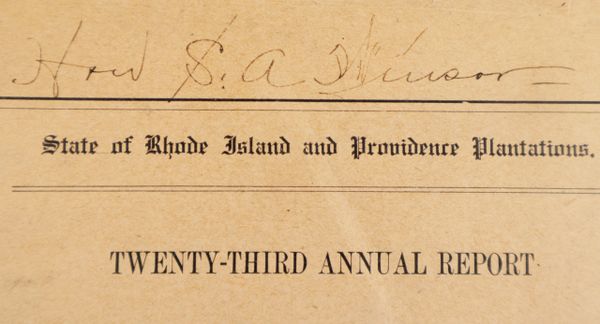 Hon S. A. Winsor
State of Rhode Island and Providence Plantations.
TWENTY-THIRD ANNUAL REPORT